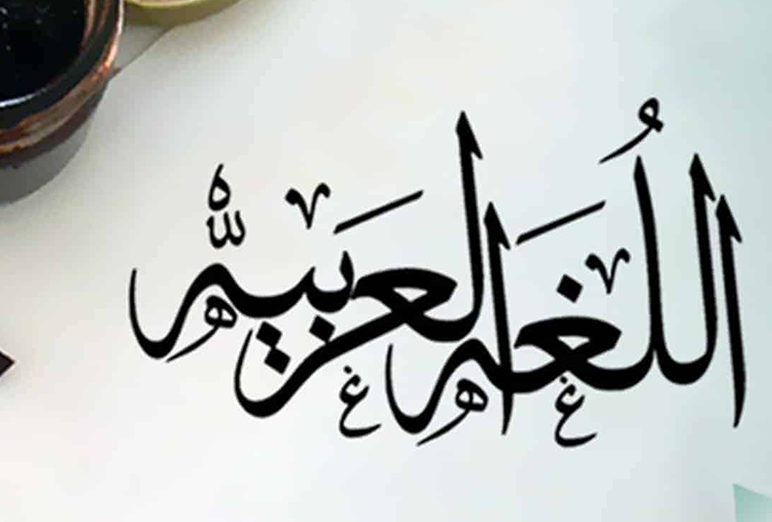 اللُّغه العربيّه